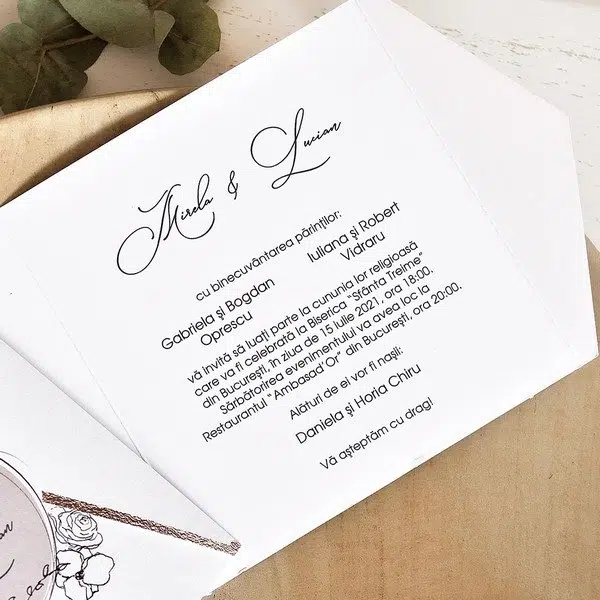 Mirela & Lucian
cu binecuvântarea părinților:
Gabriela și Bogdan
Oprescu
Iuliana și Robert
Vidraru
vă invită să luați parte la cununia lor religioasă
care va fi celebrată la Biserica "Sfânta Treime"
din București, în ziua de 15 iulie 2021, ora 18:00.
Sărbătorirea evenimentului va avea loc la
Restaurantul " Ambasad'Or" din București, ora 20:00.
Alături de ei vor fi nașii:
Daniela și Horia Chiru
Vă așteptăm cu drag!